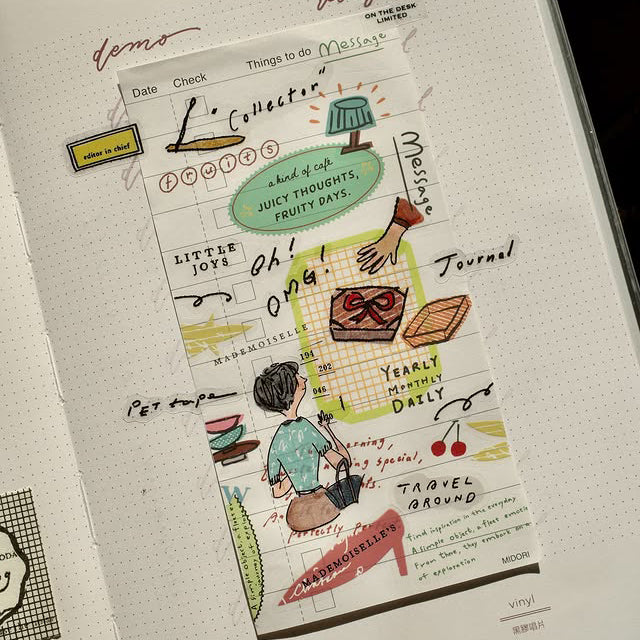 ON THE DESK
LIMITED
demo
Date Check Things to do Message
"Collector"
editor in chief
fruits
a kind of cafe
JUICY THOUGHTS,
FRUITY DAYS.
Message
LITTLE
JOYS
Oh!
OMG!
Journal
MADEMOISELLE
194
202
046
YEARLY
MONTHLY
DAILY
PET tape
W
TRAVEL
AROUND
perfectly
MADEMOISELLE'S
find inspiration in the everyday
A simple object, a fleet
From there, they embark on
of exploration
A simple object
MIDORI
vinyl
黑膠唱片